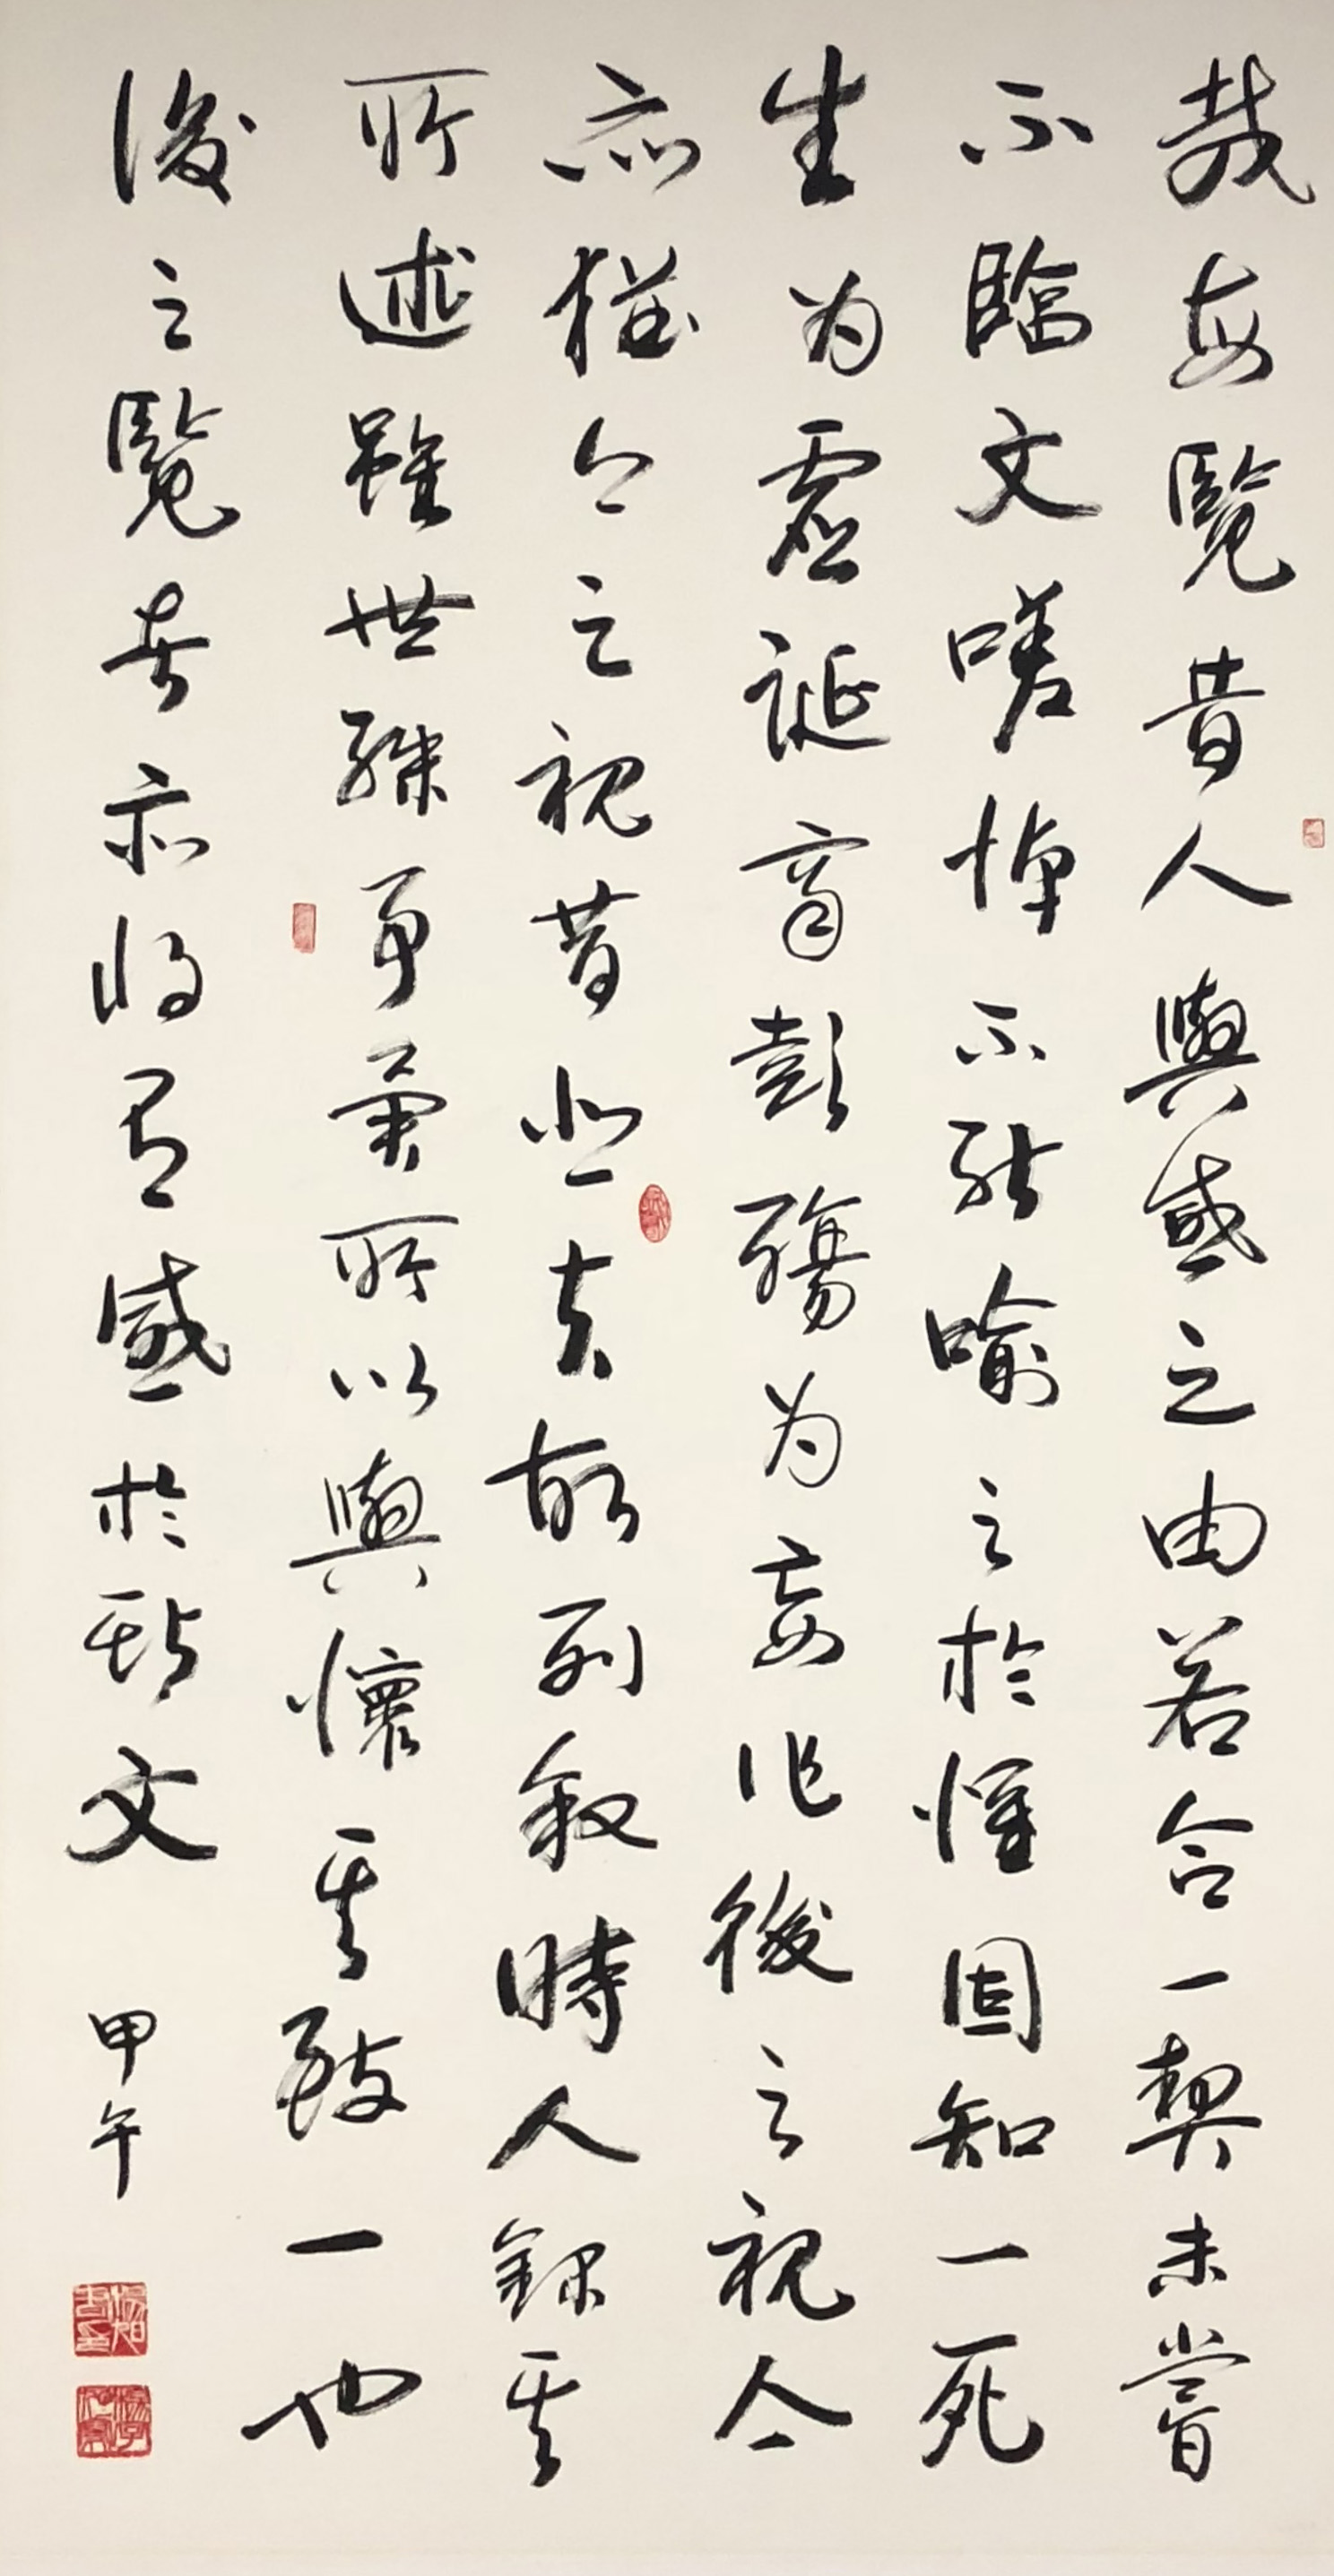 哉每覽昔人興感之由若合一契未嘗
不臨文嗟悼不能喻之於懷固知一死
生为虛誕齊彭殤为妄作後之視今
亦猶今之視昔悲夫故列叙時人錄其
所述雖世殊事異所以興懷其致一也
後之覽者亦將有感於斯文 甲午